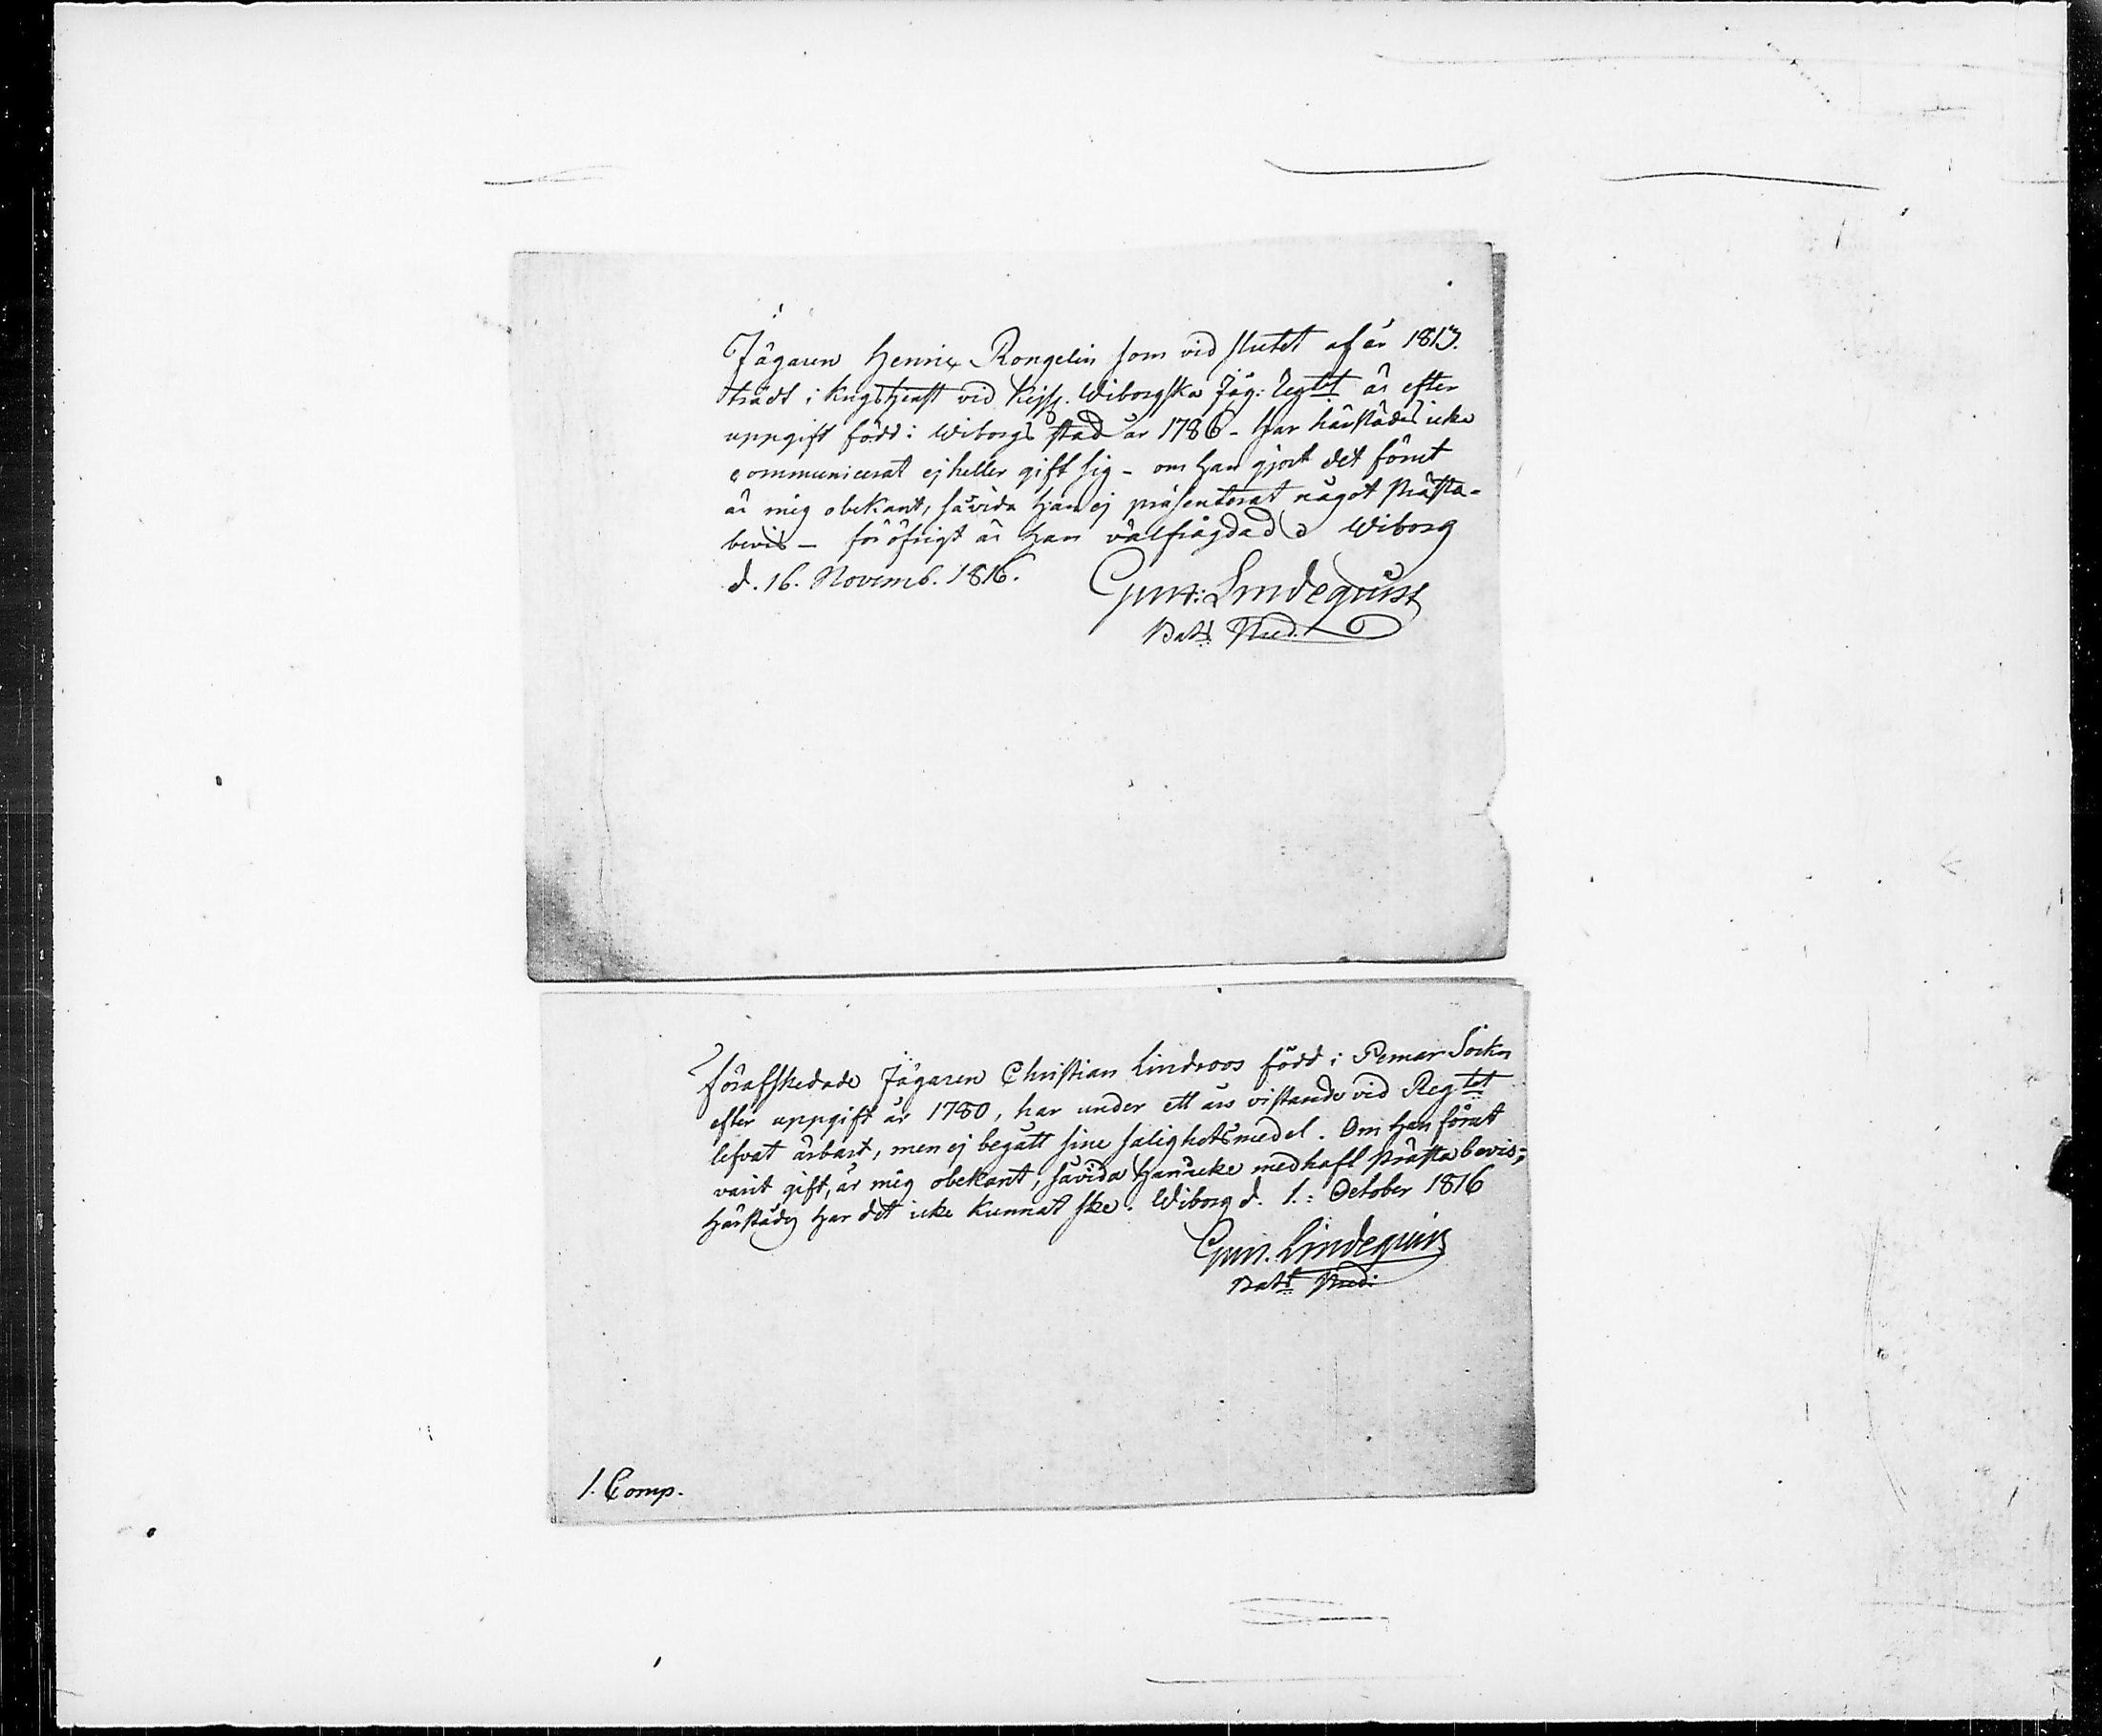 Jägaren Henric Rongelin som vid slutet af år 1813.
trädt i krigstjenst vid Kejsj. Wiborgska Jäg: Regtet är efter
uppgift född i Wiborgs stad år 1786 - har härstädes icke
communicerat ej heller gift sig - om han gjort det förut
är mig obekant, såvida han ej präsenterat något Prästa-
bevis - för öfrigt är han välfrägdad Wiborg
d. 16. Novemb. 1816.
Gust: Lindequist
Bats Pred.
Förafskedade Jägaren Christian Lindroos född i Pemar Sockn
efter uppgift år 1780, har under ett års vistande vid Regtet
lefvat ärbart, men ej begått sine salighetsmedel. Om han förut
varit gift, är mig obekant, såvida han icke medhaft Prästabevis;
härstädes har det icke kunnat ske. Wiborg d. 1: October 1816
Gust. Lindequist
Bats Pred:
1. Comp.